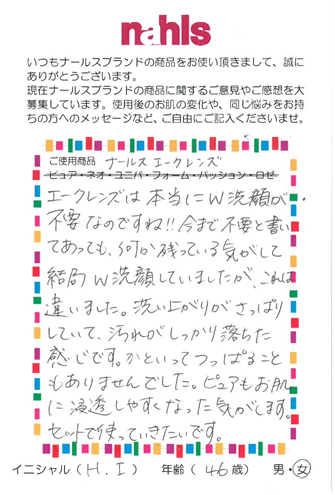 nahls
いつもナールスブランドの商品をお使い頂きまして、誠に
ありがとうございます。
現在ナールスブランドの商品に関するご意見やご感想を大
募集しています。使用後のお肌の変化や、同じ悩みをお持
ちの方へのメッセージなど、ご自由にご記入くださいませ。
ご使用商品 ナールスエークレンズ
ピュア・ネオ・ユニバ・フォーム・パッション・ロゼ
エークレンズは本当にW洗顔が
不要なのですね!!今まで不要と書い
てあっても、何か残っている気がして
結局W洗顔していましたが、これは
違いました。洗い上がりがさっぱり
していて、汚れがしっかり落ちた
感じです。かといってつっぱること
もありませんでした。ピュアもお肌
に浸透しやすくなった気がします。
セットで使っていきたいです。
イニシャル(H.I) 年齢(46歳) 男・女